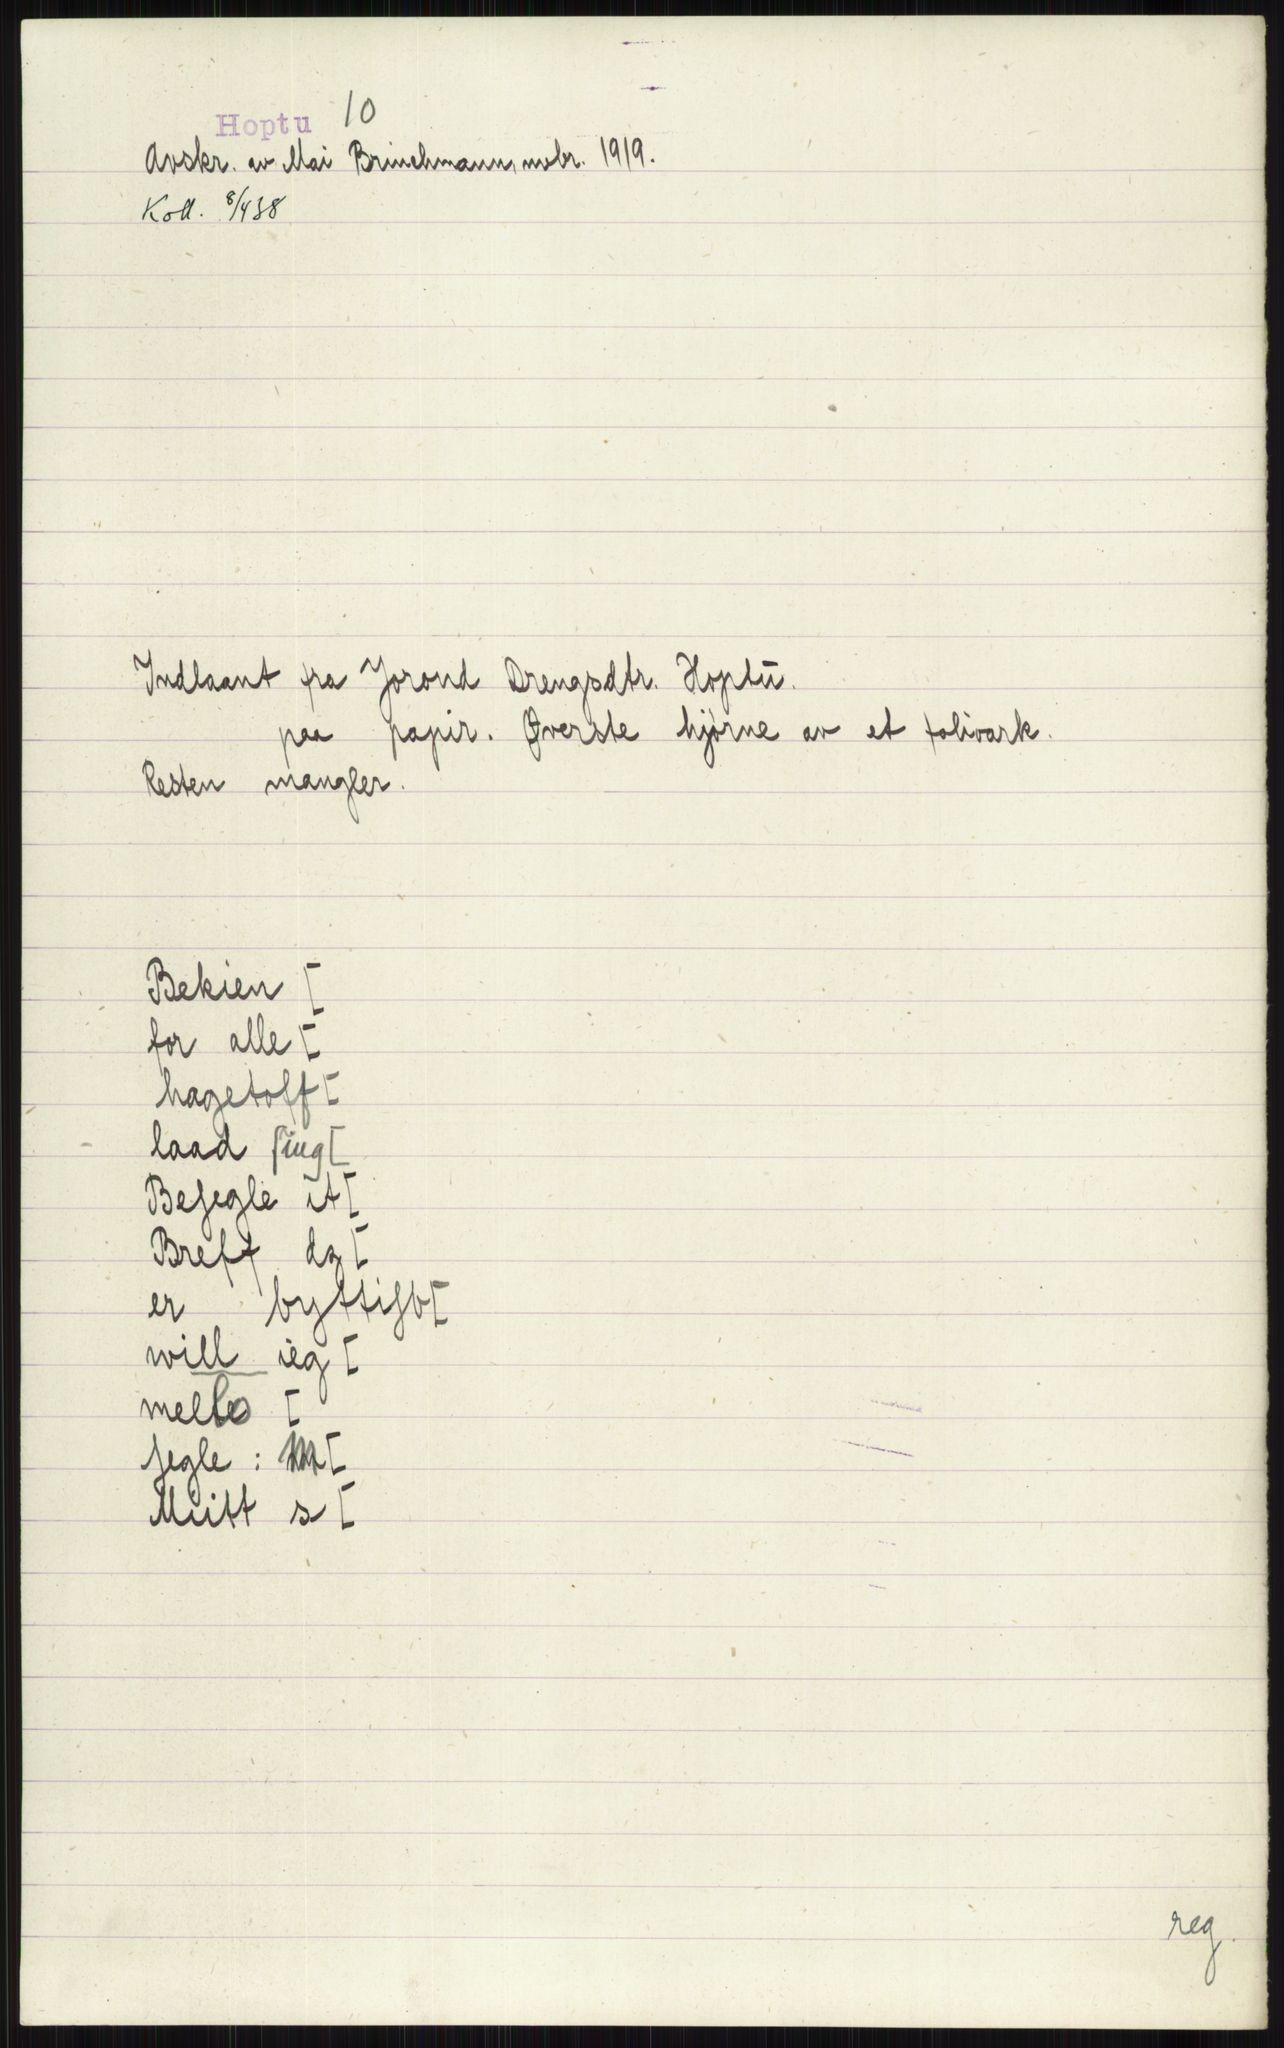 Hoptu 10
Avskr. av Mai Brinchmann, novbr. 1919.
Koll. 8/4 38
Indlaant fra Jorond Drengsdtr. Hoptu.
paa papir. Øverste hjørne av et folioark.
Resten mangler.
Bekien [
for alle [
hagetoff [
laad siug [
Besegle it [
Breff da [
er byttisb [
will ieg [
melle [
segle : [
Mitt s [
reg.